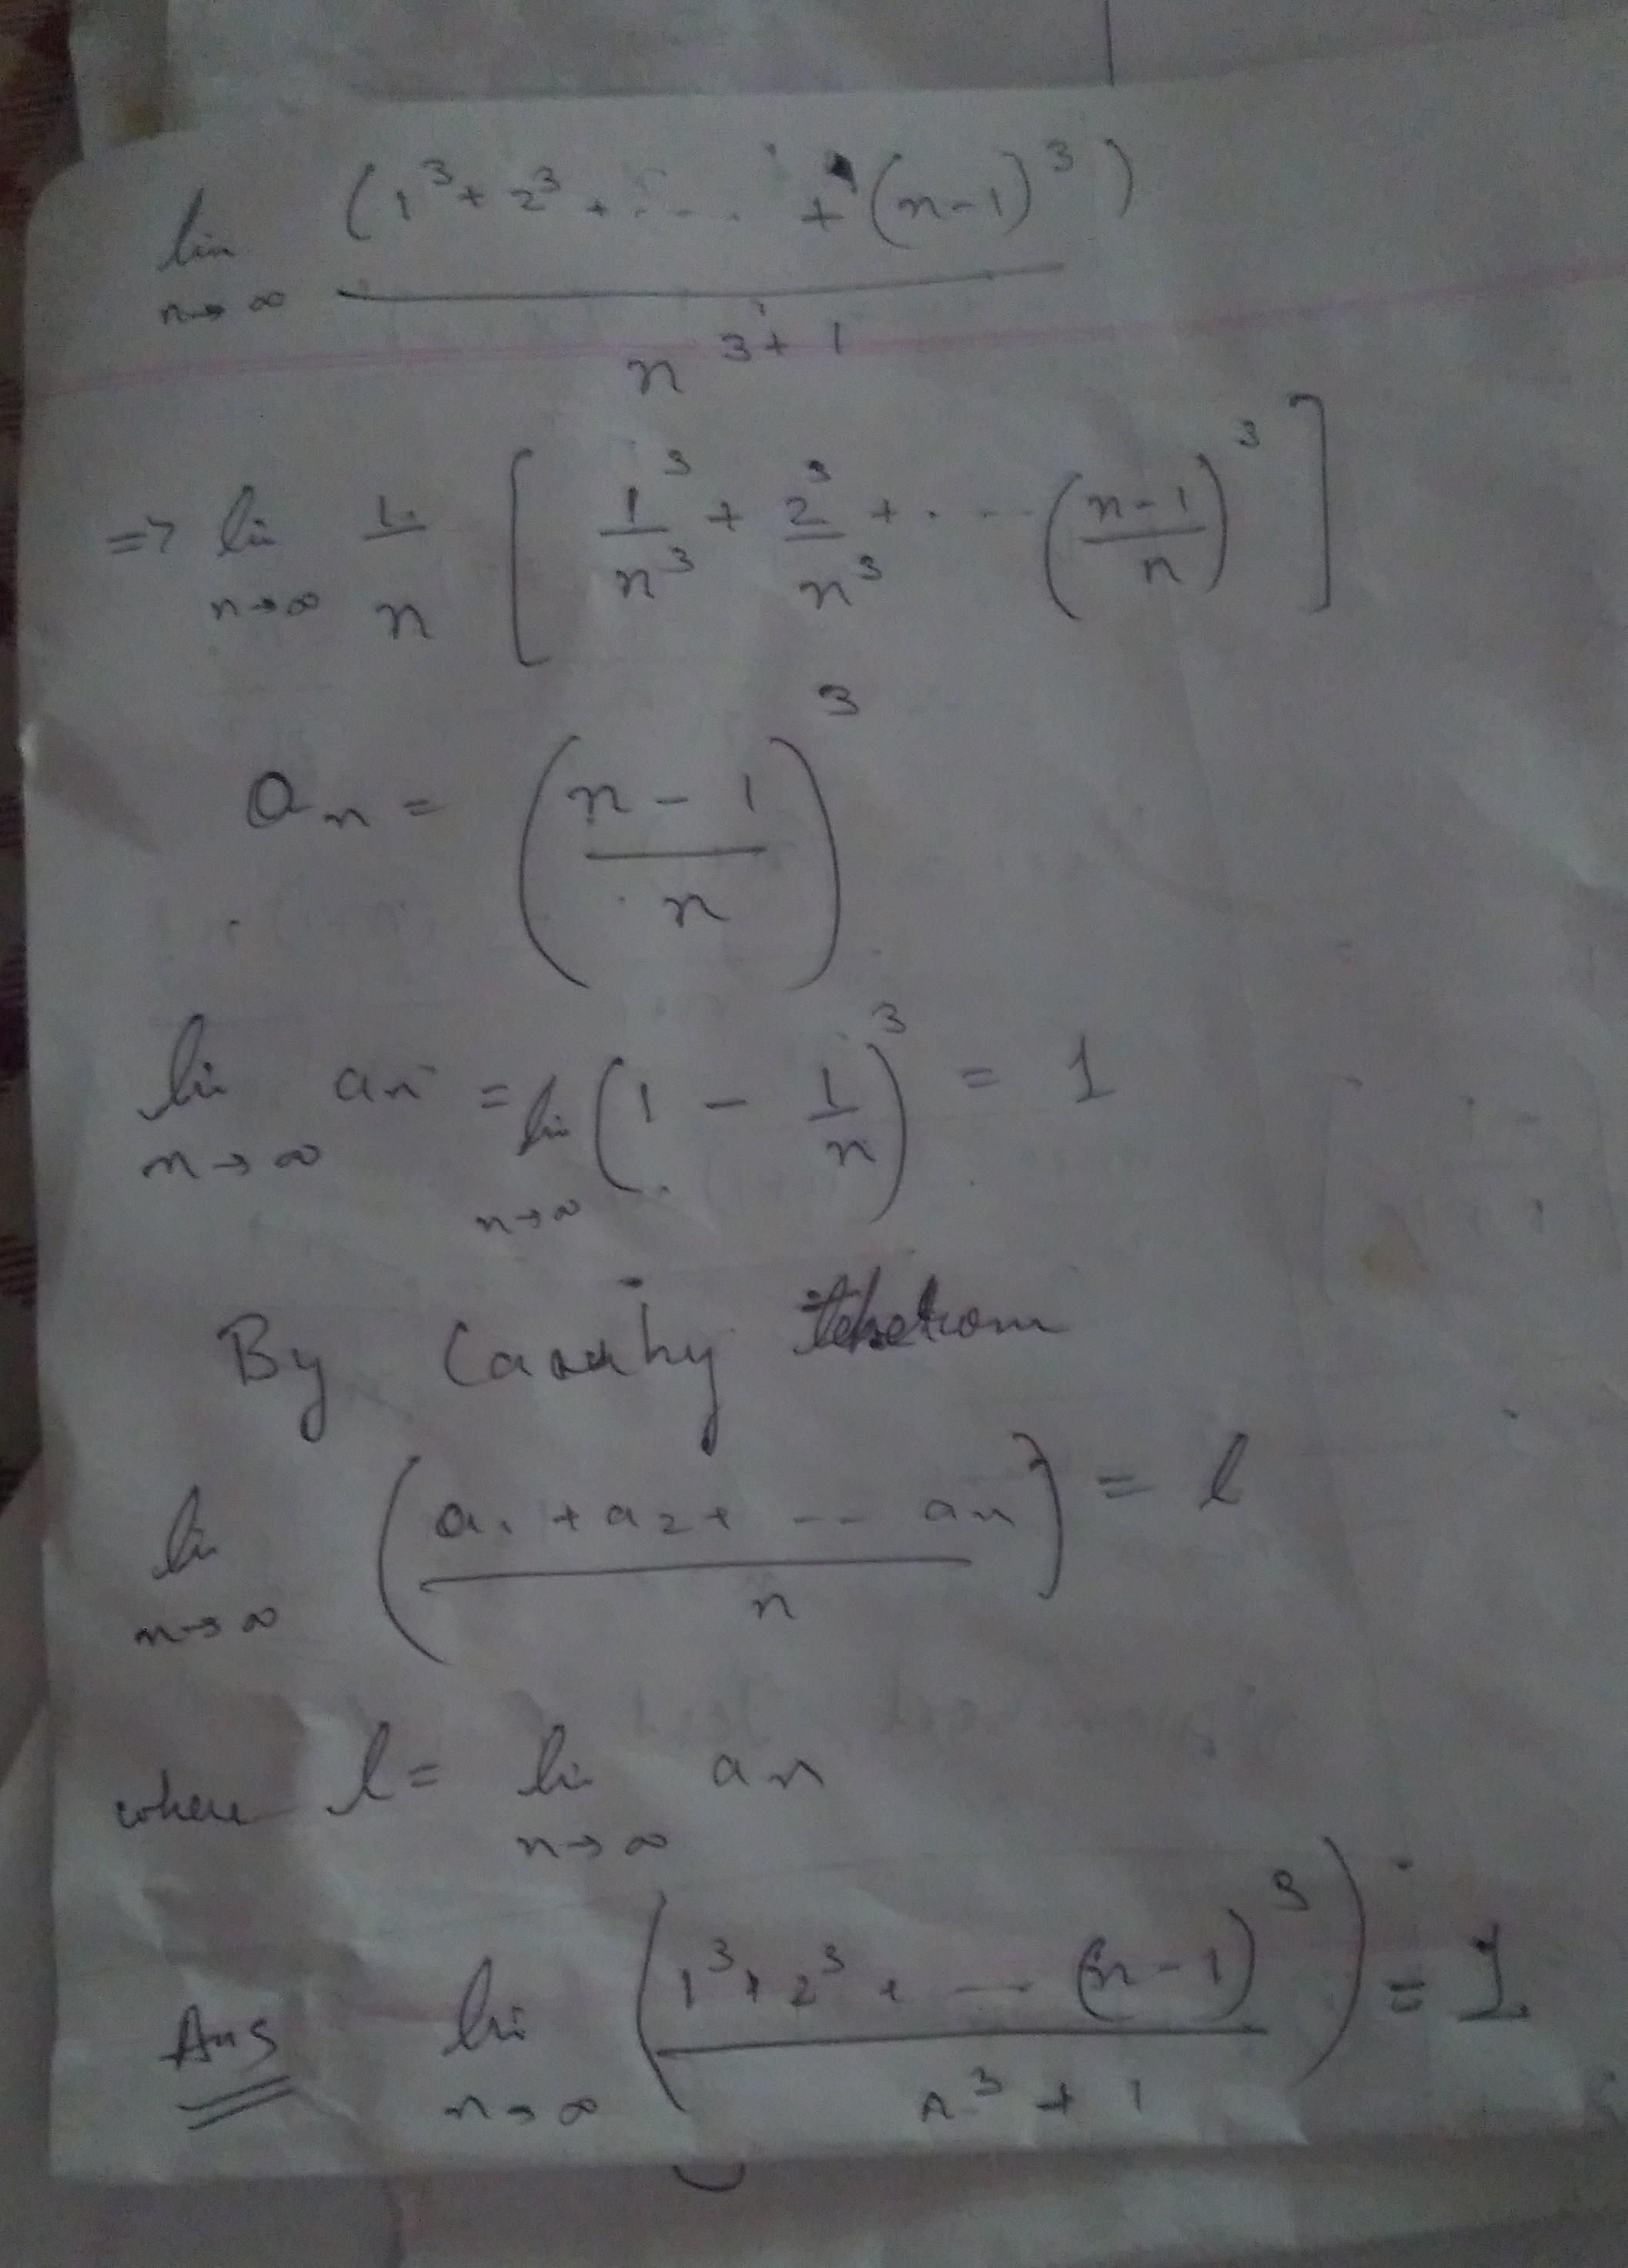 lim n→∞ (1³ + 2³ + .... + (n-1)³) / n^(3+1)
=> lim n→∞ 1/n [ 1³/n³ + 2³/n³ + .-- ((n-1)/n)³ ]
an = ((n-1)/n)³
lim n→∞ an = lim n→∞ (1 - 1/n)³ = 1
By
lim n→∞ ((a1 + a2 + --- an)/n) = l
where l = lim n→∞ an
Ans lim n→∞ ((1³ + 2³ + --- (n-1)³)/(n³ + 1)) = 1